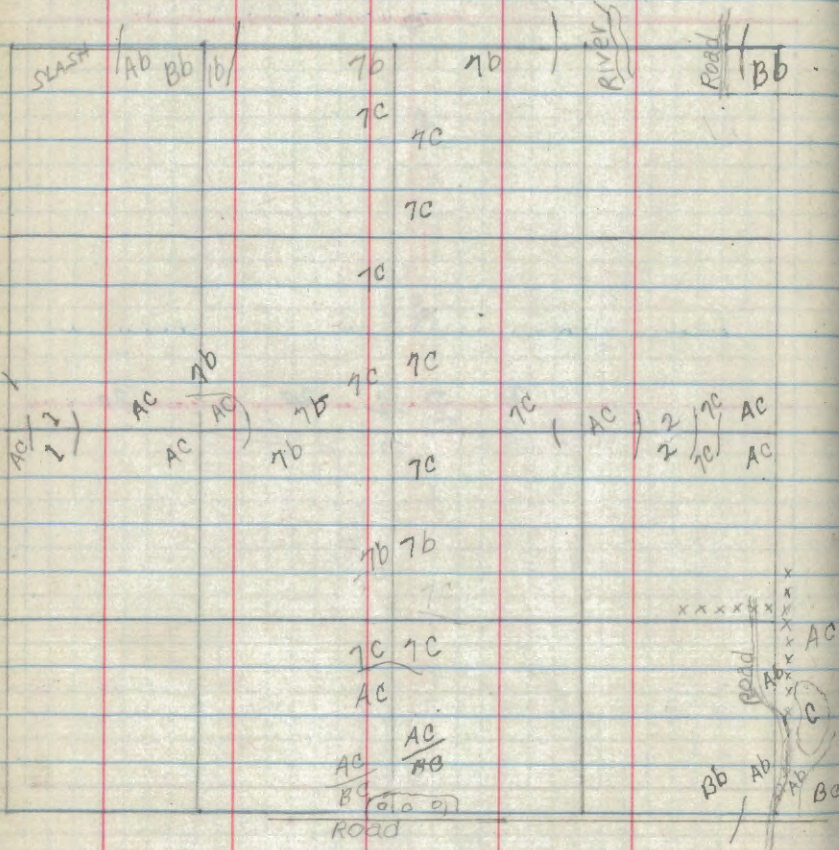 SLASH Ab Bb 1b 7b 7b River Road Bb
7C 7C
7C
7C
7C 7C
AC 7b AC 7b 7C AC 2 7C AC
AC 1 1 AC 7b 7C 2 7C AC
7b 7b
7C
7C 7C AC
AC Road Ab C
AC AC
BC BC Bb Ab Ab BC
Road